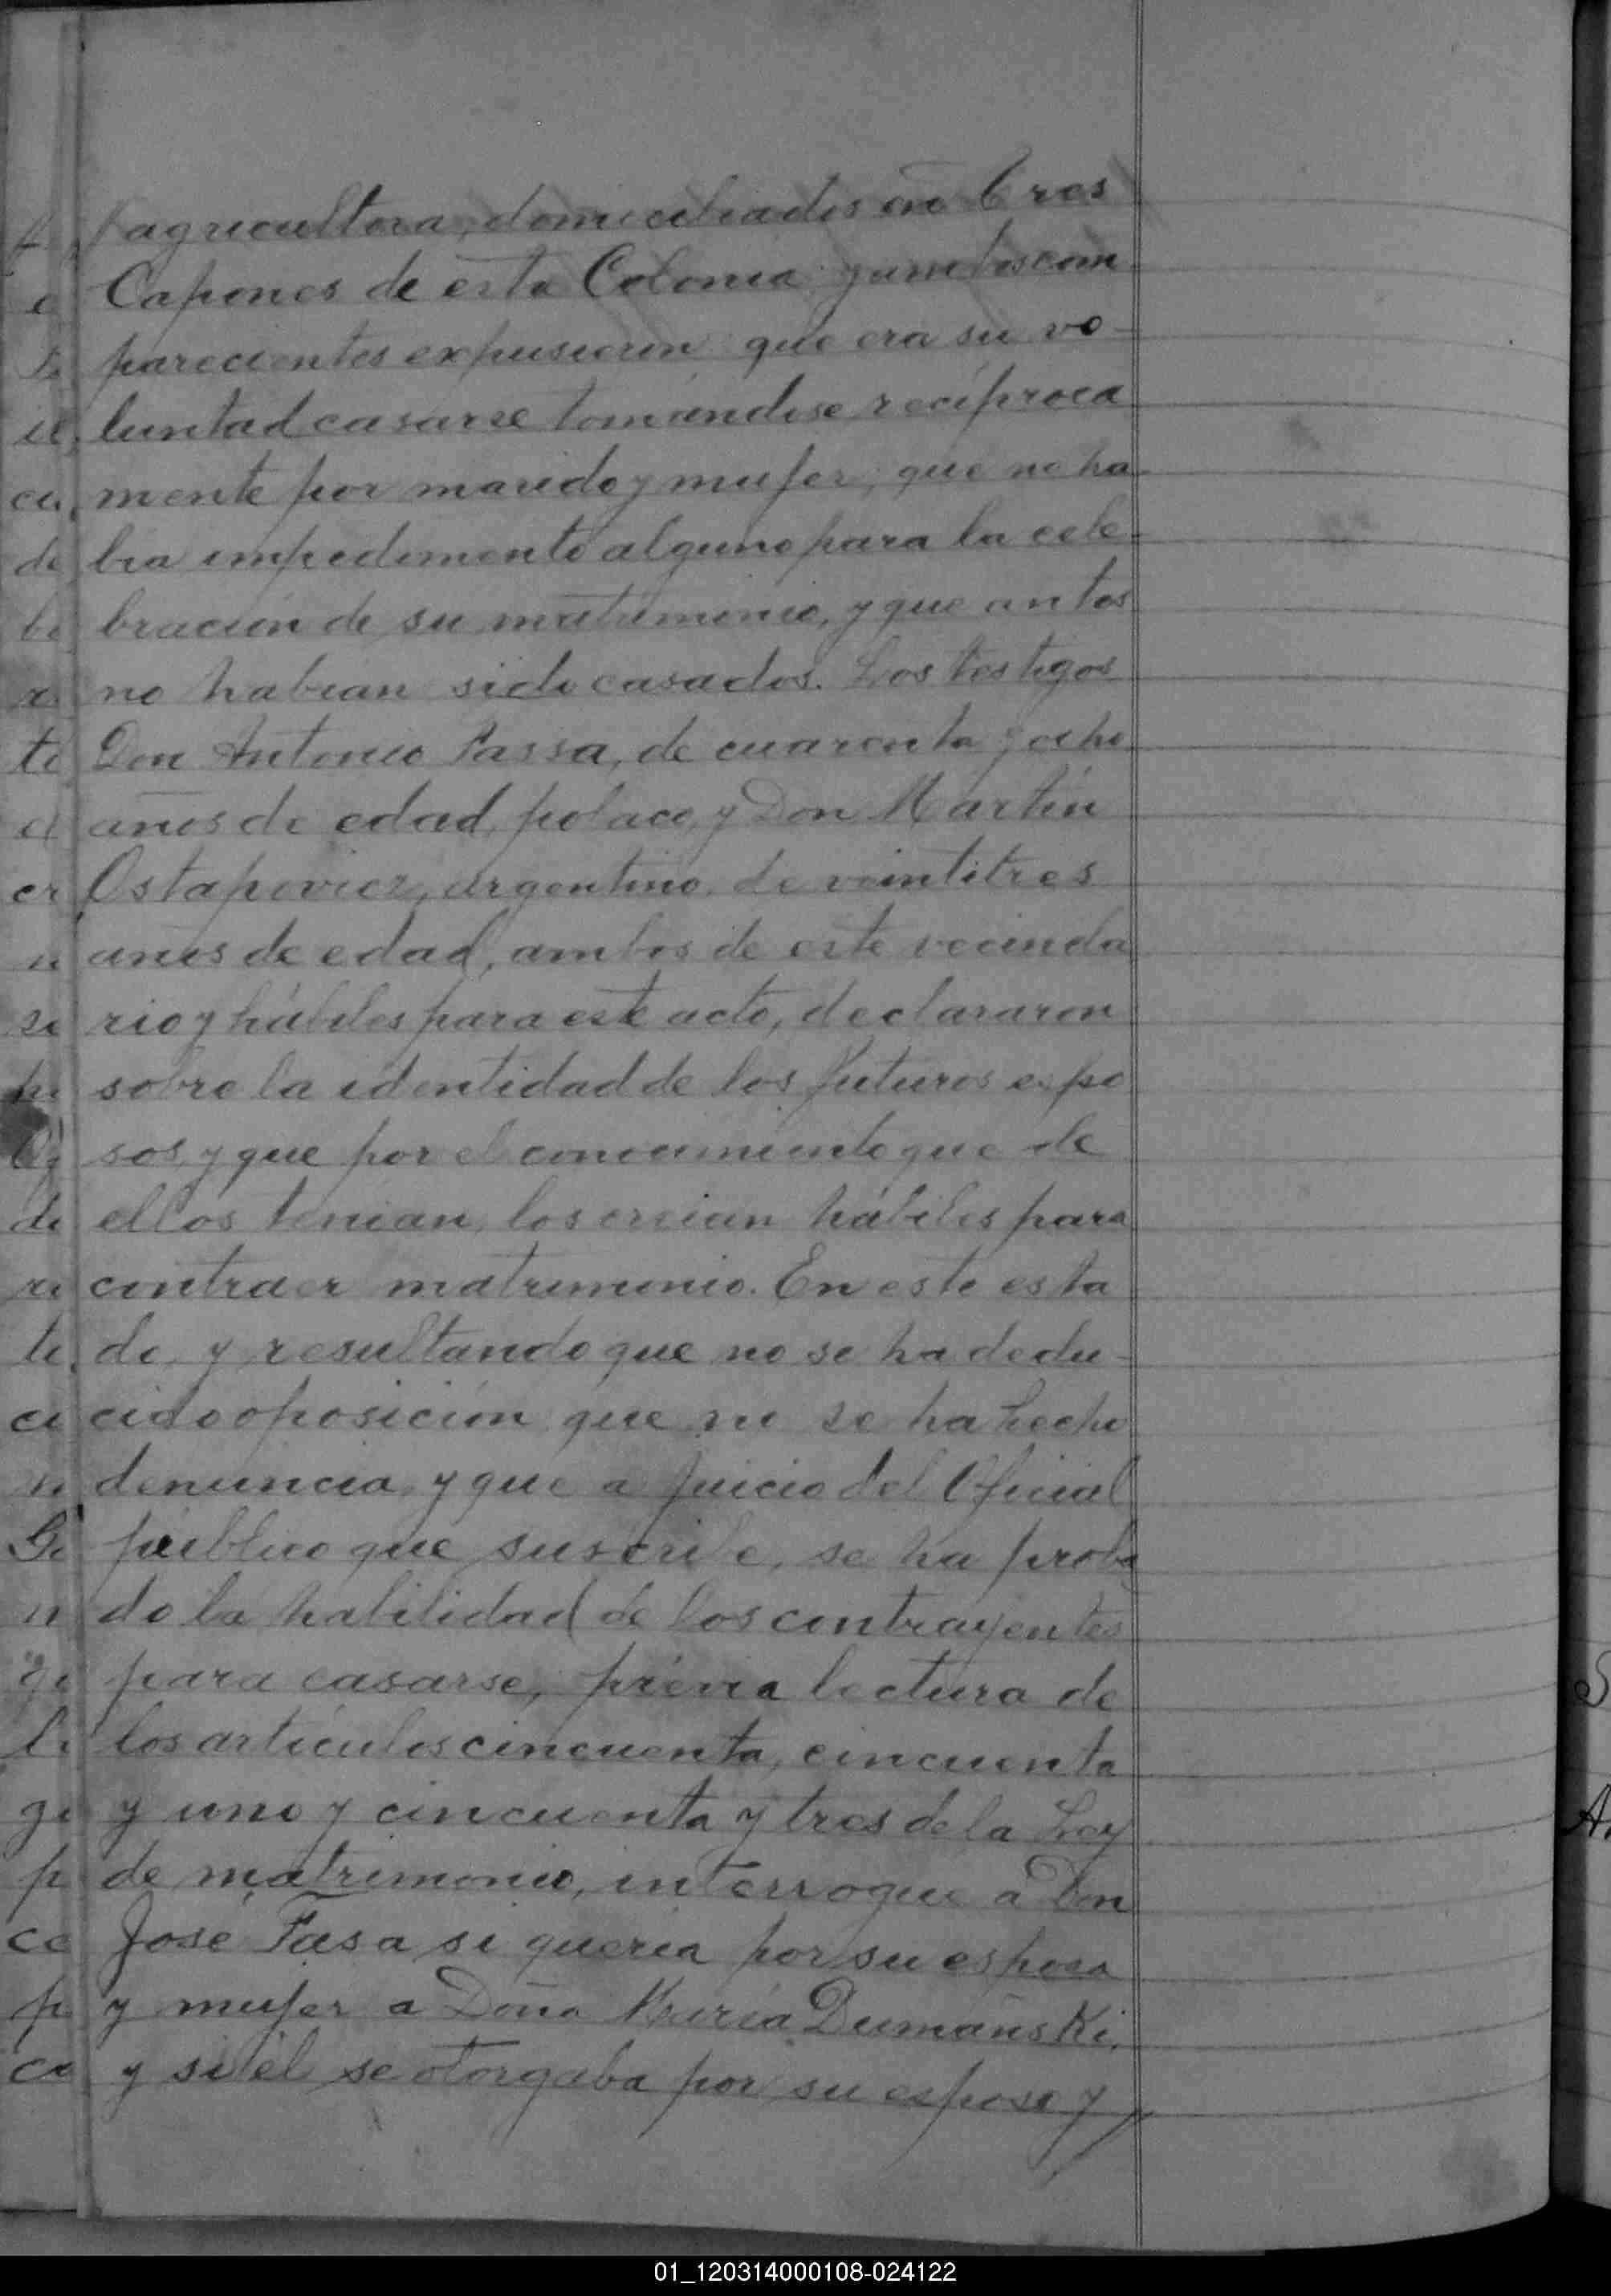 /agricultora, domiciliados en Tres
Capones de esta Colonia y ambos com
parecientes expusieron que era su vo-
luntad casarse tomándose recíproca
mente por marido y mujer, que no ha
bia impedimento alguno para la cele
bración de su matrimonio, y que antes
no habían sido casados. Los testigos
Don Antonio Fassa, de cuarenta y ocho
años de edad, polaco, y Don Martín
Ostapovicz, argentino, de veintitres
años de edad, ambos de este vecinda
rio y hábiles para este acto, declararon
sobre la identidad de los futuros espo
sos, y que por el conocimiento que de
ellos tenian, los creian hábiles para
contraer matrimonio. En este esta
do, y resultando que no se ha dedu-
cido oposición que no se ha hecho
denuncia, y que a juicio del Oficial
público que suscribe, se ha proba
do la habilidad de los contrayentes
para casarse, prévia lectura de
los artículos cincuenta, cincuenta
y uno y cincuenta y tres de la Ley
de matrimonio, interrogué a Don
José Fasa si quería por su esposa
y mujer a Doña María Dumañski,
y si él se otorgaba por su esposo y/
01_120314000108-024122